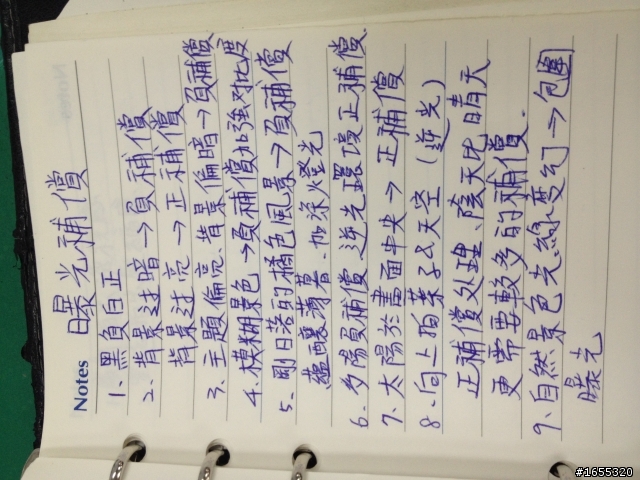 Notes 曝光補償
1. 黑負白正
2. 背景过暗→負補償
背景过亮→正補償
3. 主題偏亮、背景偏暗→負補償
4. 模糊景色→負補償加強对比度
5. 剛日落的橘色風景→負補償
薄暮.加添燈光
6. 夕陽負補償 逆光環境正補償.
7. 太陽於畫面中央→正補償
8. 向上拍葉子&天空(逆光)
正補償処理、陰天比晴天
更需要較多的補償.
9. 自然景色光線变幻→包圍
曝光
#1655320